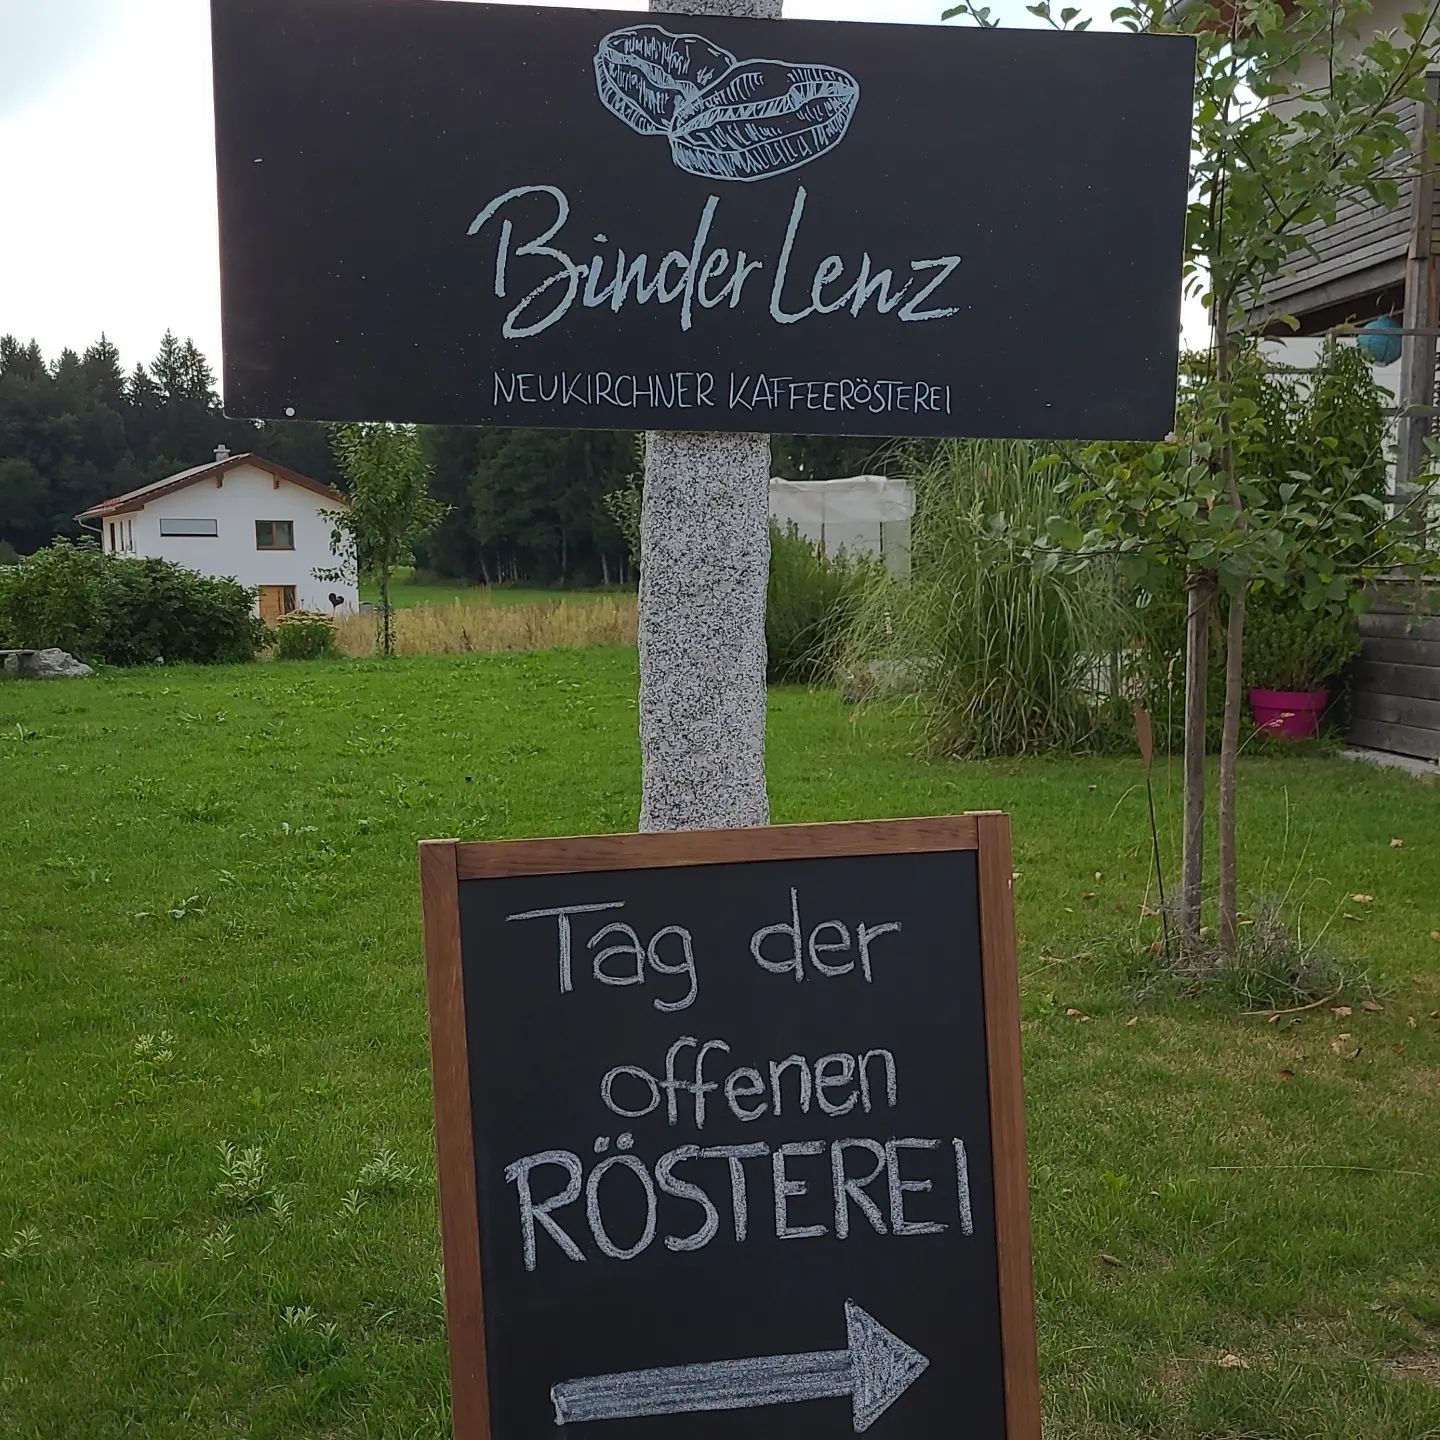 Binder Lenz
NEUKIRCHNER KAFFEERÖSTEREI
Tag der
offenen
RÖSTEREI